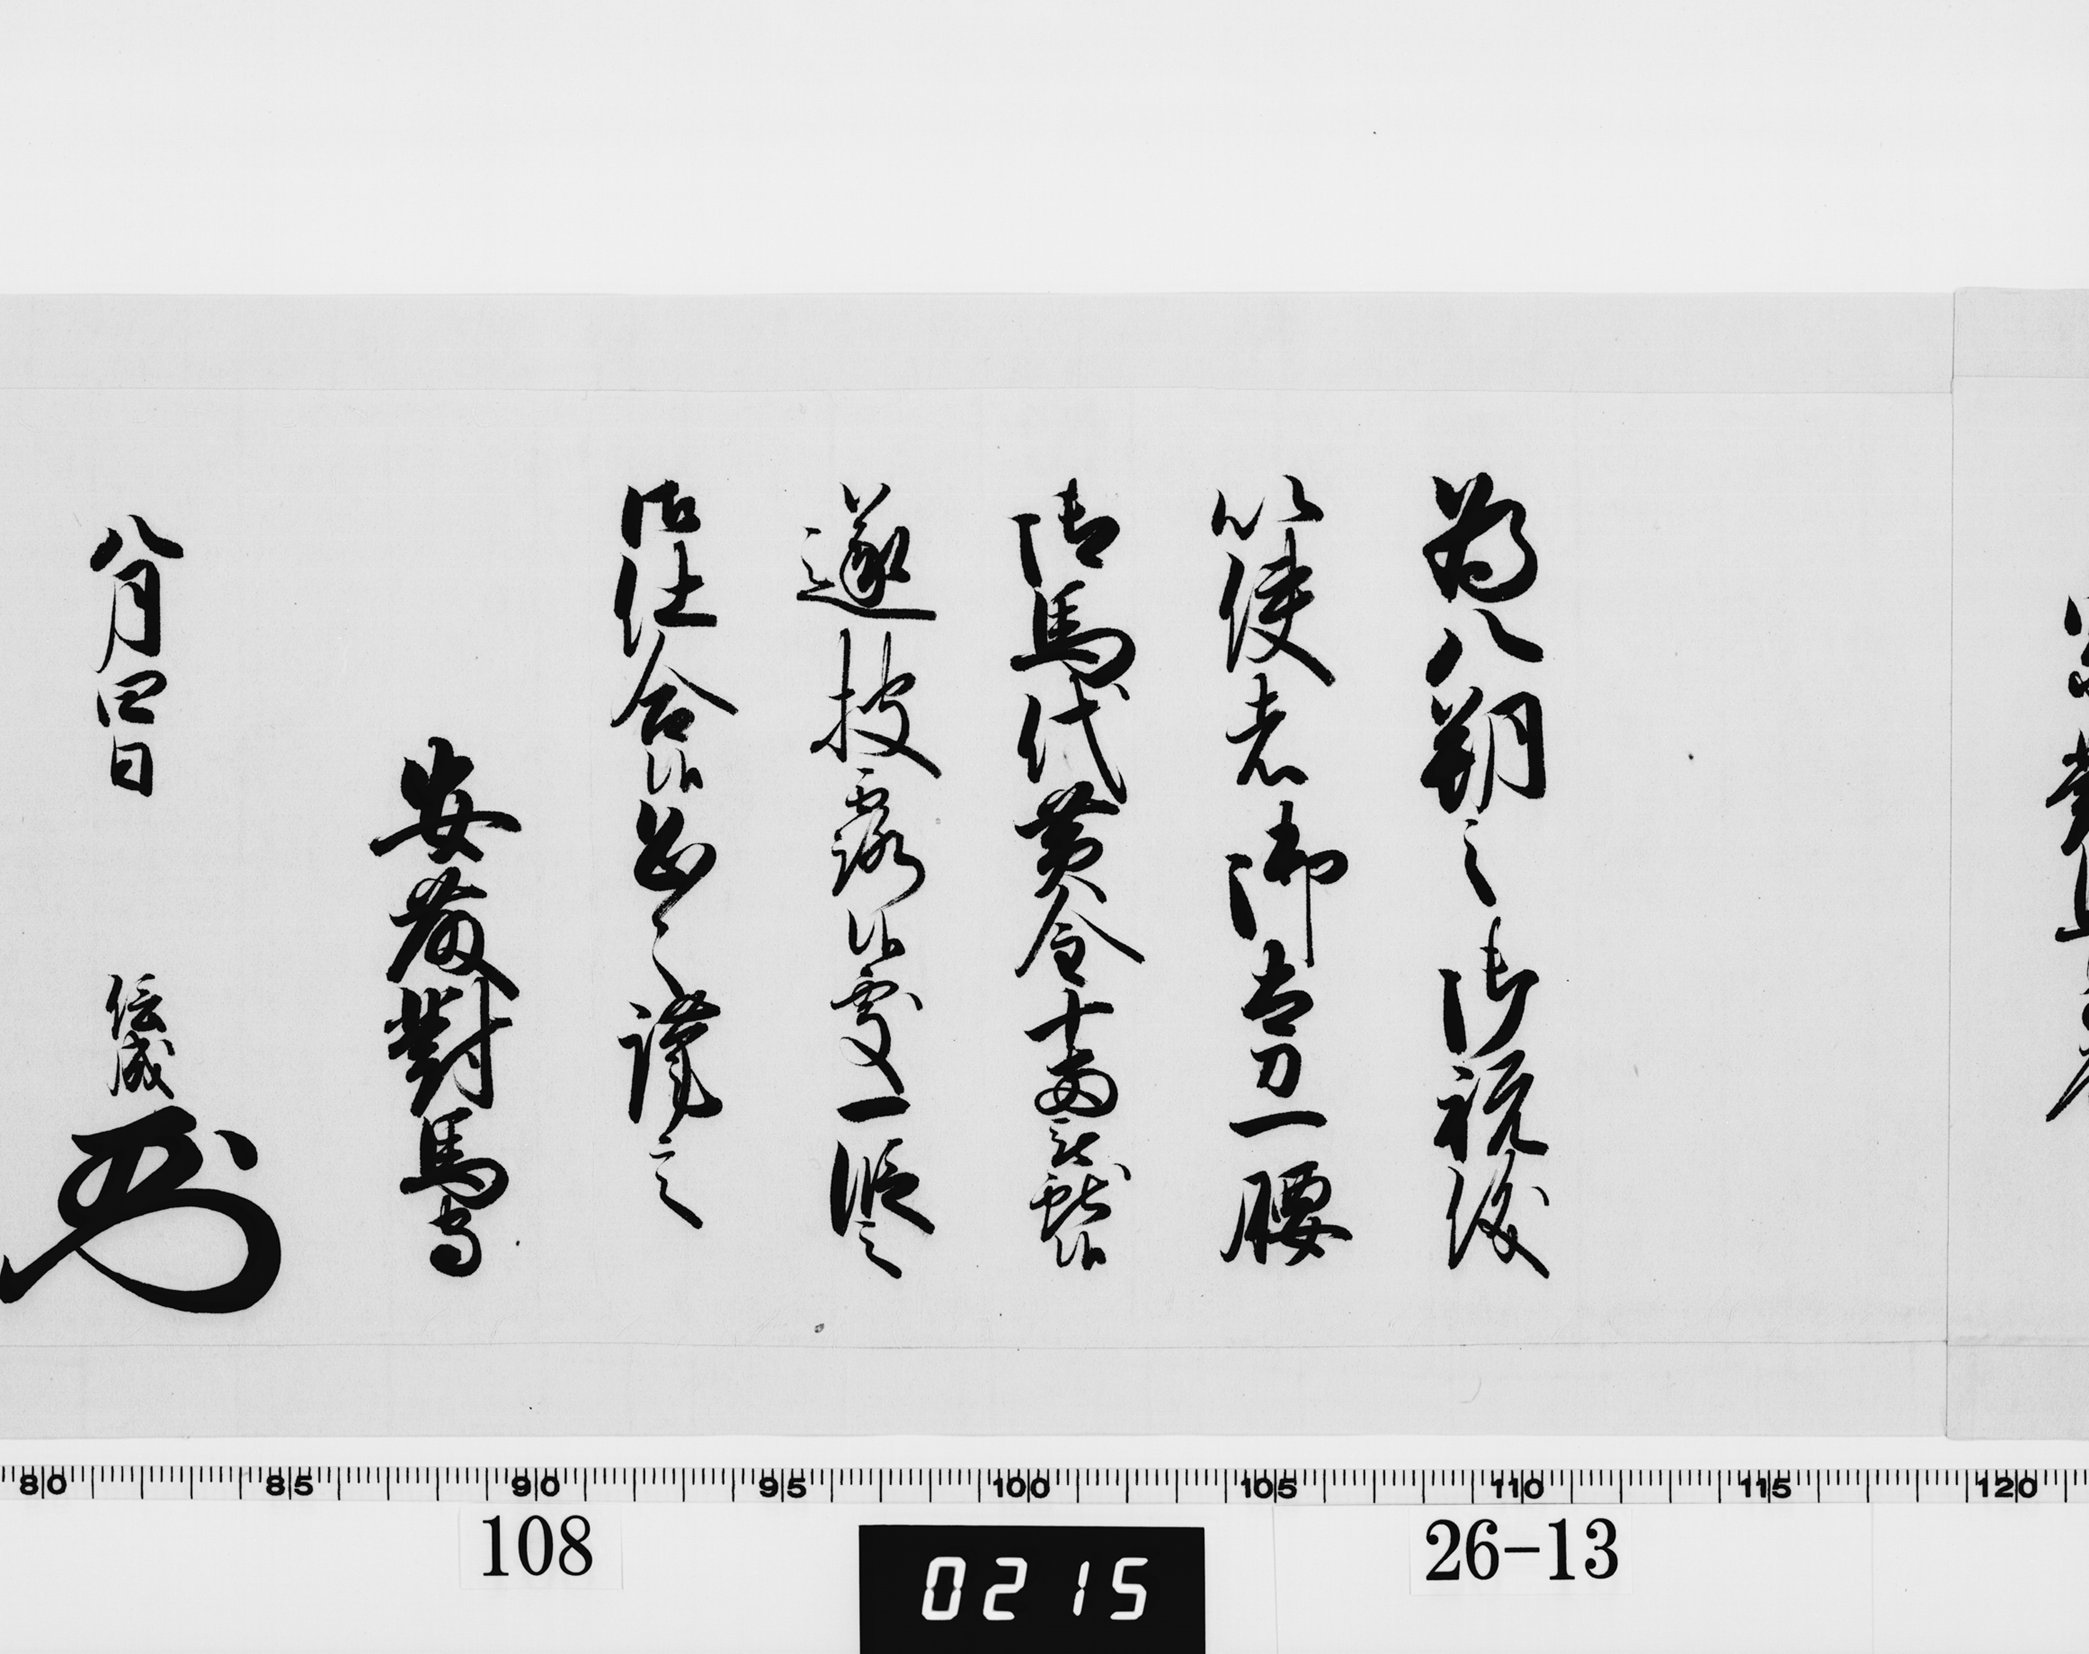 為八朔之御祝儀
以使者御太刀一腰
御馬代黄金十両被獻候
遂披露候處一段之
御仕合候恐々謹言
安藤對馬守
八月四日 信成
80 85 90 95 100 105 110 115 120
108 0215 26-13